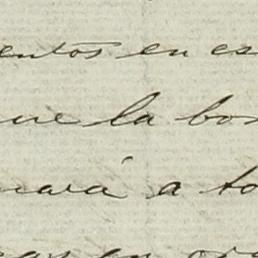 entos en es
ue la bon
nará a to
en